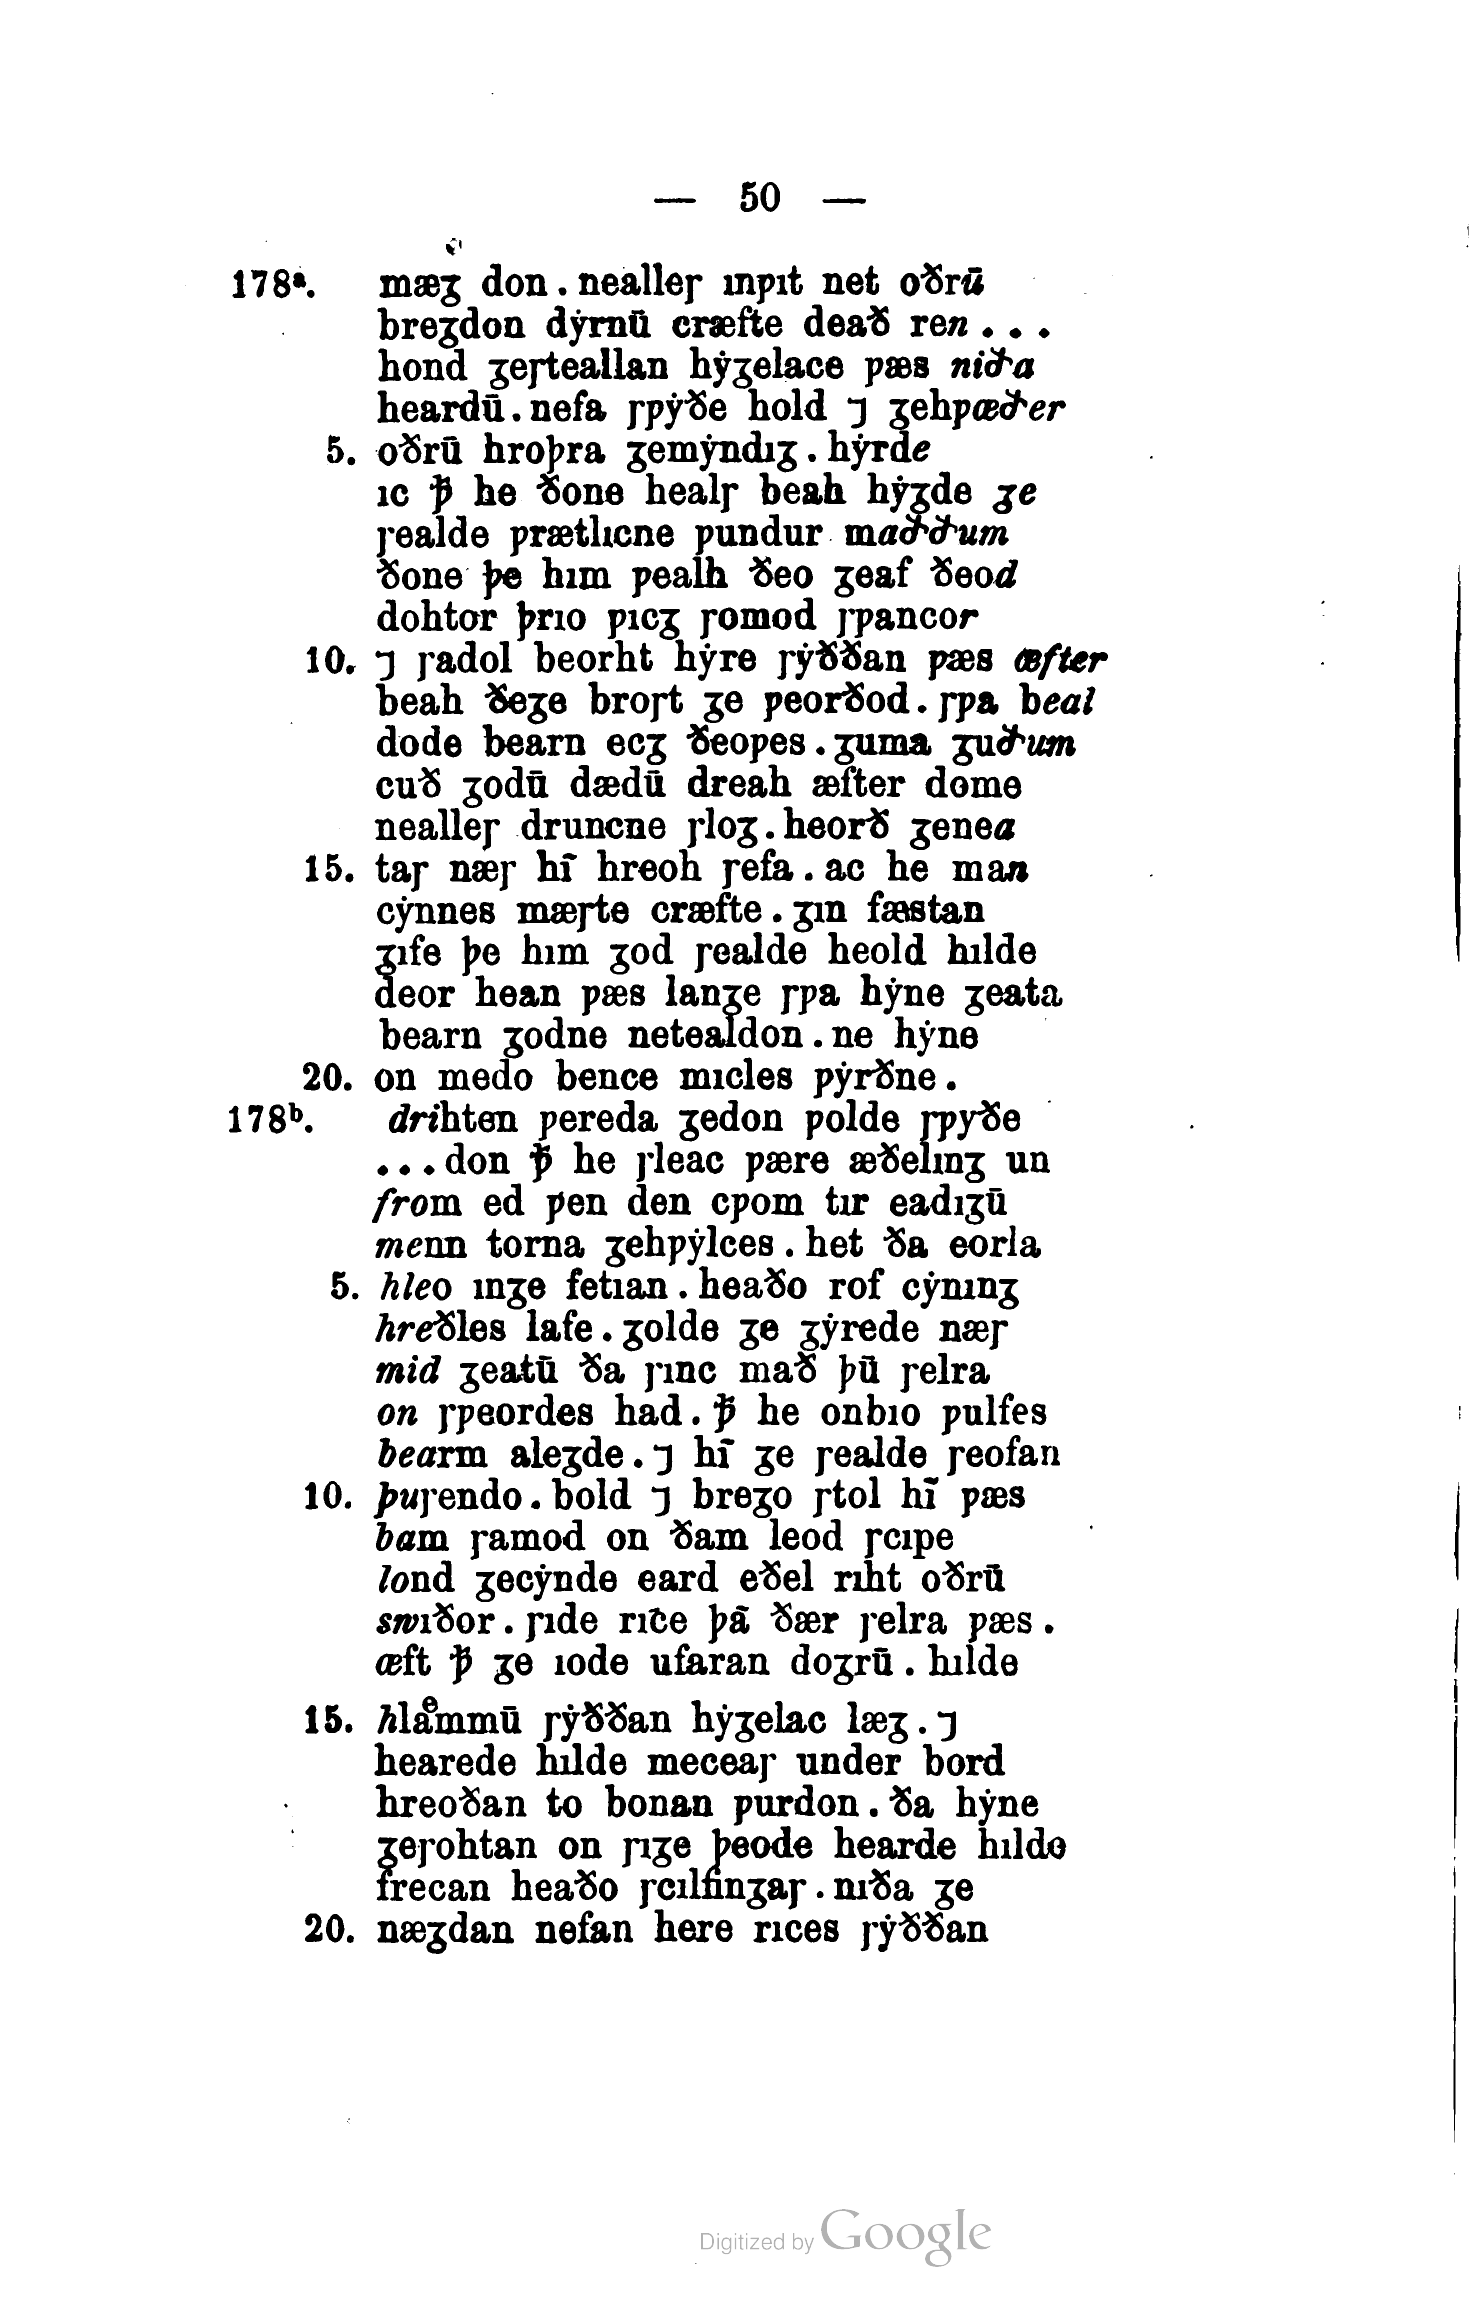 — 50 —
178ª. mæʒ don . nealleꞅ ınpıt net oðrū
breʒdon dẏrnū cræfte deað ren . . .
hond ʒeꞅteallan hẏʒelace pæs niða
heardū . nefa ꞅpẏðe hold ⁊ ʒehpæðer
5. oðrū hroþra ʒemẏndıʒ . hẏrde
ıc ꝥ he ðone healꞅ beah hẏʒde ʒe
ꞅealde prætlıcne pundur maððum
ðone þe hım pealh ðeo ʒeaf ðeod
dohtor þrıo pıcʒ ꞅomod ꞅpancor
10. ⁊ ꞅadol beorht hẏre ꞅẏððan pæs æfter
beah ðeʒe broꞅt ʒe peorðod . ꞅpa beal
dode bearn ecʒ ðeopes . ʒuma ʒuðum
cuð ʒodū dædū dreah æfter dome
nealleꞅ druncne ꞅloʒ . heorð ʒenea
15. taꞅ næꞅ hī hreoh ꞅefa . ac he man
cẏnnes mæꞅte cræfte . ʒın fæstan
ʒıfe þe hım ʒod ꞅealde heold hılde
deor hean pæs lanʒe ꞅpa hẏne ʒeata
bearn ʒodne netealdon . ne hẏne
20. on medo bence mıcles pẏrðne .
178ᵇ. drihten pereda ʒedon polde ꞅpyðe
. . . don ꝥ he ꞅleac pære æðelınʒ un
from ed pen den cpom tır eadıʒū
menn torna ʒehpẏlces . het ða eorla
5. hleo ınʒe fetıan . heaðo rof cẏnınʒ
hreðles lafe . ʒolde ʒe ʒẏrede næꞅ
mid ʒeatū ða ꞅınc mað þū ꞅelra
on ꞅpeordes had . ꝥ he onbıo pulfes
bearm aleʒde . ⁊ hī ʒe ꞅealde ꞅeofan
10. þuꞅendo . bold ⁊ breʒo ꞅtol hī pæs
bam ꞅamod on ðam leod ꞅcıpe
lond ʒecẏnde eard eðel rıht oðrū
swıðor . ꞅıde rıce þā ðær ꞅelra pæs .
æft ꝥ ʒe ıode ufaran doʒrū . hılde
15. hlaͤmmū ꞅẏððan hẏʒelac læʒ . ⁊
hearede hılde meceaꞅ under bord
hreoðan to bonan purdon . ða hẏne
ʒeꞅohtan on ꞅıʒe þeode hearde hılde
frecan heaðo ꞅcılfinʒaꞅ . nıða ʒe
20. næʒdan nefan here rıces ꞅẏððan
Digitized by Google